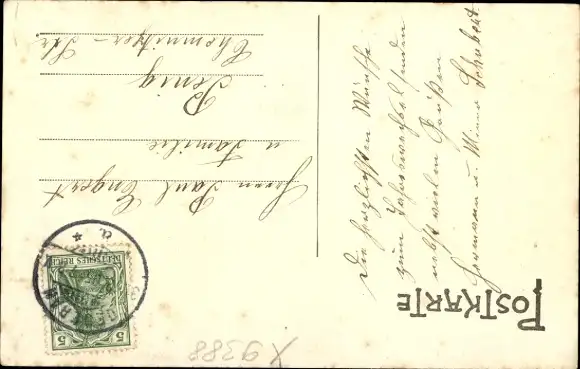 POSTKARTE
Die herzlichsten Wünsche
zum Jahreswechsel senden
nebst vielen Grüßen
Hermann u. Minna Schubert
Herrn Paul Engert
u Familie
Penig
Chemnitzer-Str
DEUTSCHES REICH
5 5
X 9388